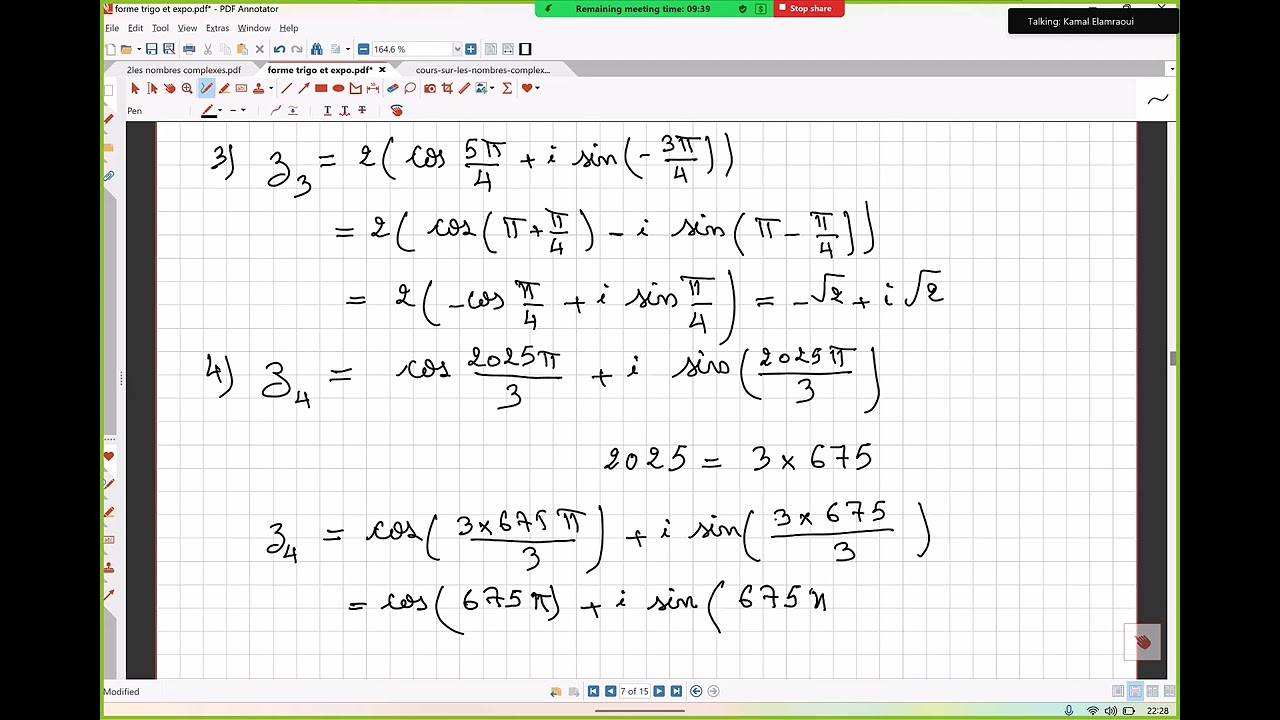 forme trigo et expo.pdf* – PDF Annotator
Remaining meeting time: 09:39
Stop share
Talking: Kamal Elamraoui
File Edit Tool View Extras Window Help
164.6 %
2les nombres complexes.pdf forme trigo et expo.pdf* cours-sur-les-nombres-complex...
Pen
3) z₃ = 2(cos 5π/4 + i sin(- 3π/4))
= 2(cos(π + π/4) - i sin(π - π/4))
= 2(-cos π/4 + i sin π/4) = -√2 + i√2
4) z₄ = cos 2025π/3 + i sin(2025π/3)
2025 = 3 × 675
z₄ = cos(3×675π/3) + i sin(3×675/3)
= cos(675π) + i sin(675π
Modified
7 of 15
22:28